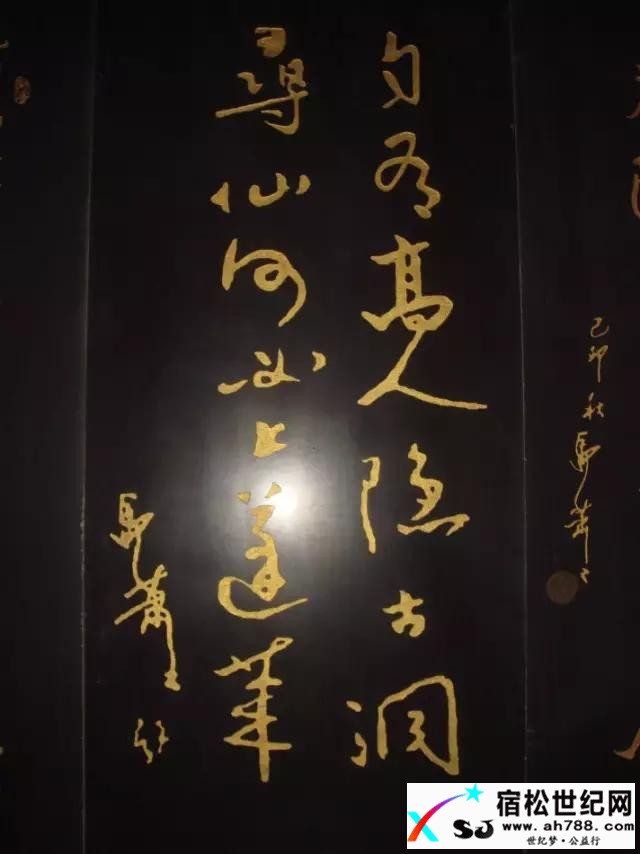 自有高人隐古洞
尋仙何必上蓬莱
己卯秋馬萧萧
宿松世纪网
XSJ
www.ah788.com
世纪梦·公益行